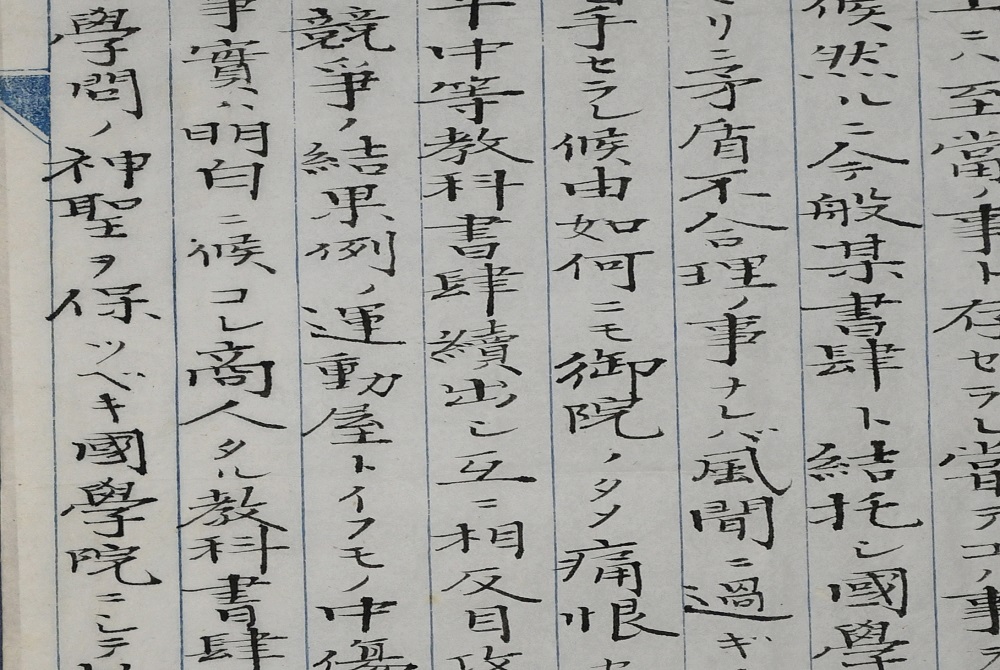 ハ至當ノ事ト存セラレ當テ
候然ルニ今般某書肆ト結托シ國學
リ矛盾不合理ノ事ナレバ風聞ニ過ギ
手セラレ候由如何ニモ御院ノタメ痛恨セ
年中等教科書肆續出シ互ニ相反目攻
競爭ノ結果例ノ運動屋トイフモノ中傷
事實ハ明白ニ候コレ商人タル教科書肆
學問ノ神聖ヲ保ツベキ國學院ニシテ